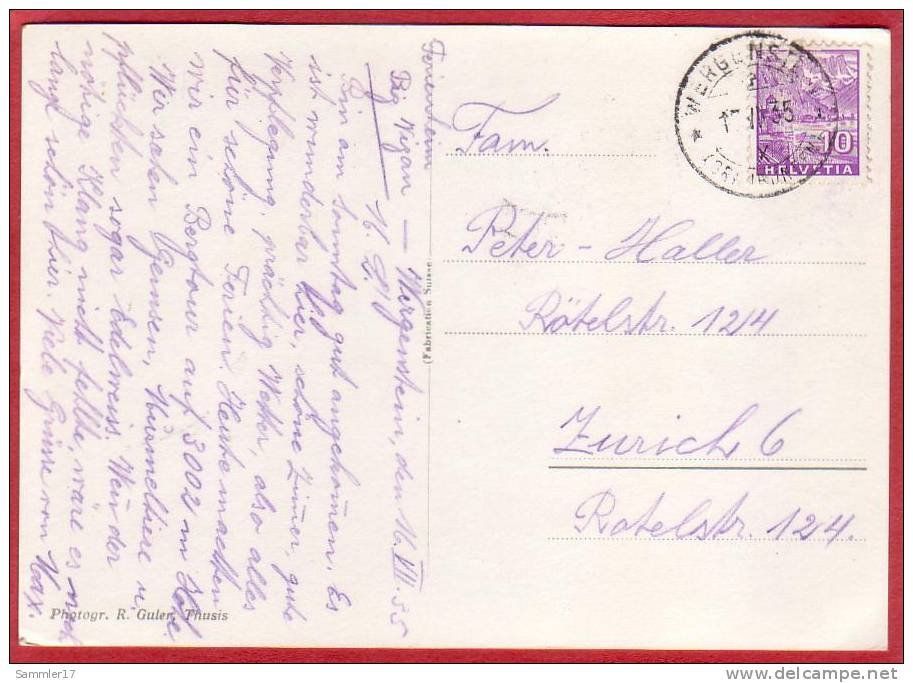 Ferienheim
Piz Vizan — Wergenstein, den 16. VII. 35
M. L.!
Bin am Sonntag gut angekom̄en. Es
ist wunderbar hier, schöne Zim̄er, gute
Verpflegung, prächtig Wetter, also alles
für schöne Ferien. Heute machten
wir ein Bergtour auf 3002 m Höhe.
Wir sahen Gemsen, Murmeltiere u.
pflückten sogar Edelweiss. Wenn der
nötige Klang nicht fehlte, wäre es noch
lange schön hier. Viele Grüsse von Max.
Photogr. R. Guler, Thusis
(Fabrication Suisse)
WERGENSTEIN
35
(GRAUBÜNDEN)
10
HELVETIA
Fam.
Peter-Haller
Rötelstr. 124
Zürich 6
Rotelstr. 124.
Sammler17
delcampe.net